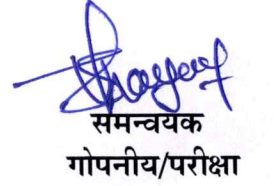 समन्वयक
गोपनीय/परीक्षा